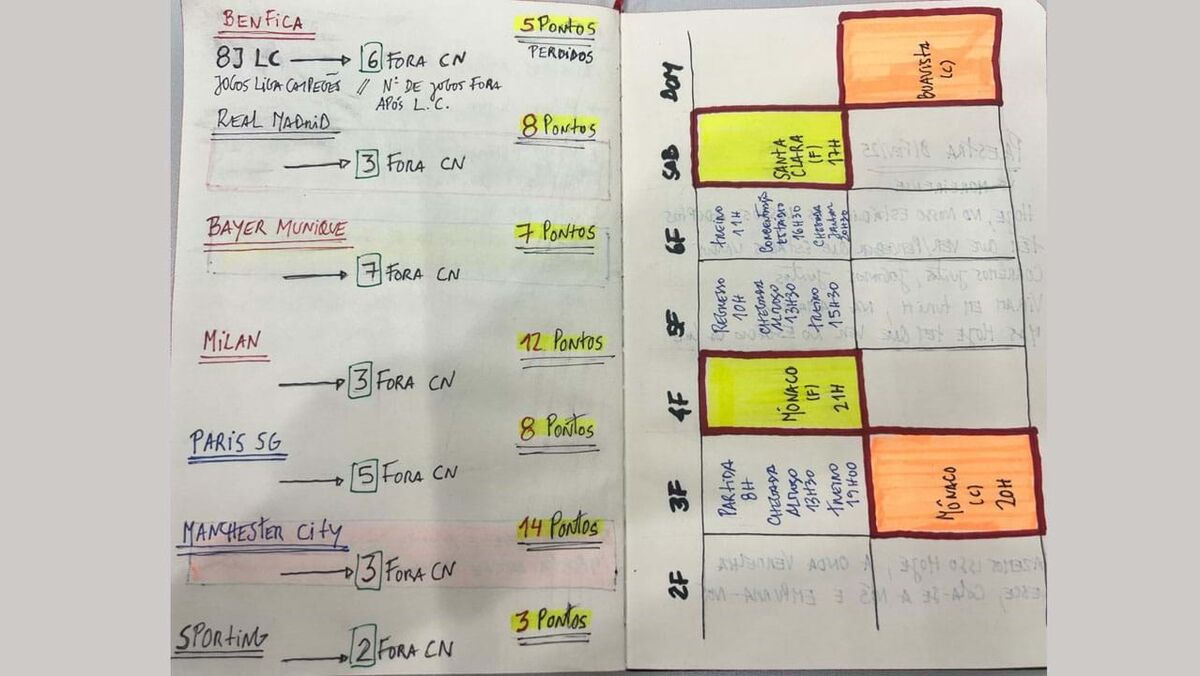 BENFICA
5 PONTOS
PERDIDOS
8J LC → 6 FORA CN
JOGOS LIGA CAMPEÕES // Nº DE JOGOS FORA
APÓS L.C.
REAL MADRID
8 PONTOS
→ 3 FORA CN
BAYER MUNIQUE
7 PONTOS
→ 7 FORA CN
MILAN
12 PONTOS
→ 3 FORA CN
PARIS SG
8 PONTOS
→ 5 FORA CN
MANCHESTER CITY
14 PONTOS
→ 3 FORA CN
SPORTING
3 PONTOS
→ 2 FORA CN
DOM
BOAVISTA
(C)
SAB
SANTA
CLARA
(F)
17H
6F
TREINO
11H
ESTÁDIO
16H30
CHEGADA
20H30
5F
REGRESSO
10H
CHEGADA
ALMOÇO
13H30
TREINO
15H30
4F
MÓNACO
(F)
21H
3F
PARTIDA
8H
CHEGADA
ALMOÇO
13H30
TREINO
19H00
MÔNACO
(C)
20H
2F